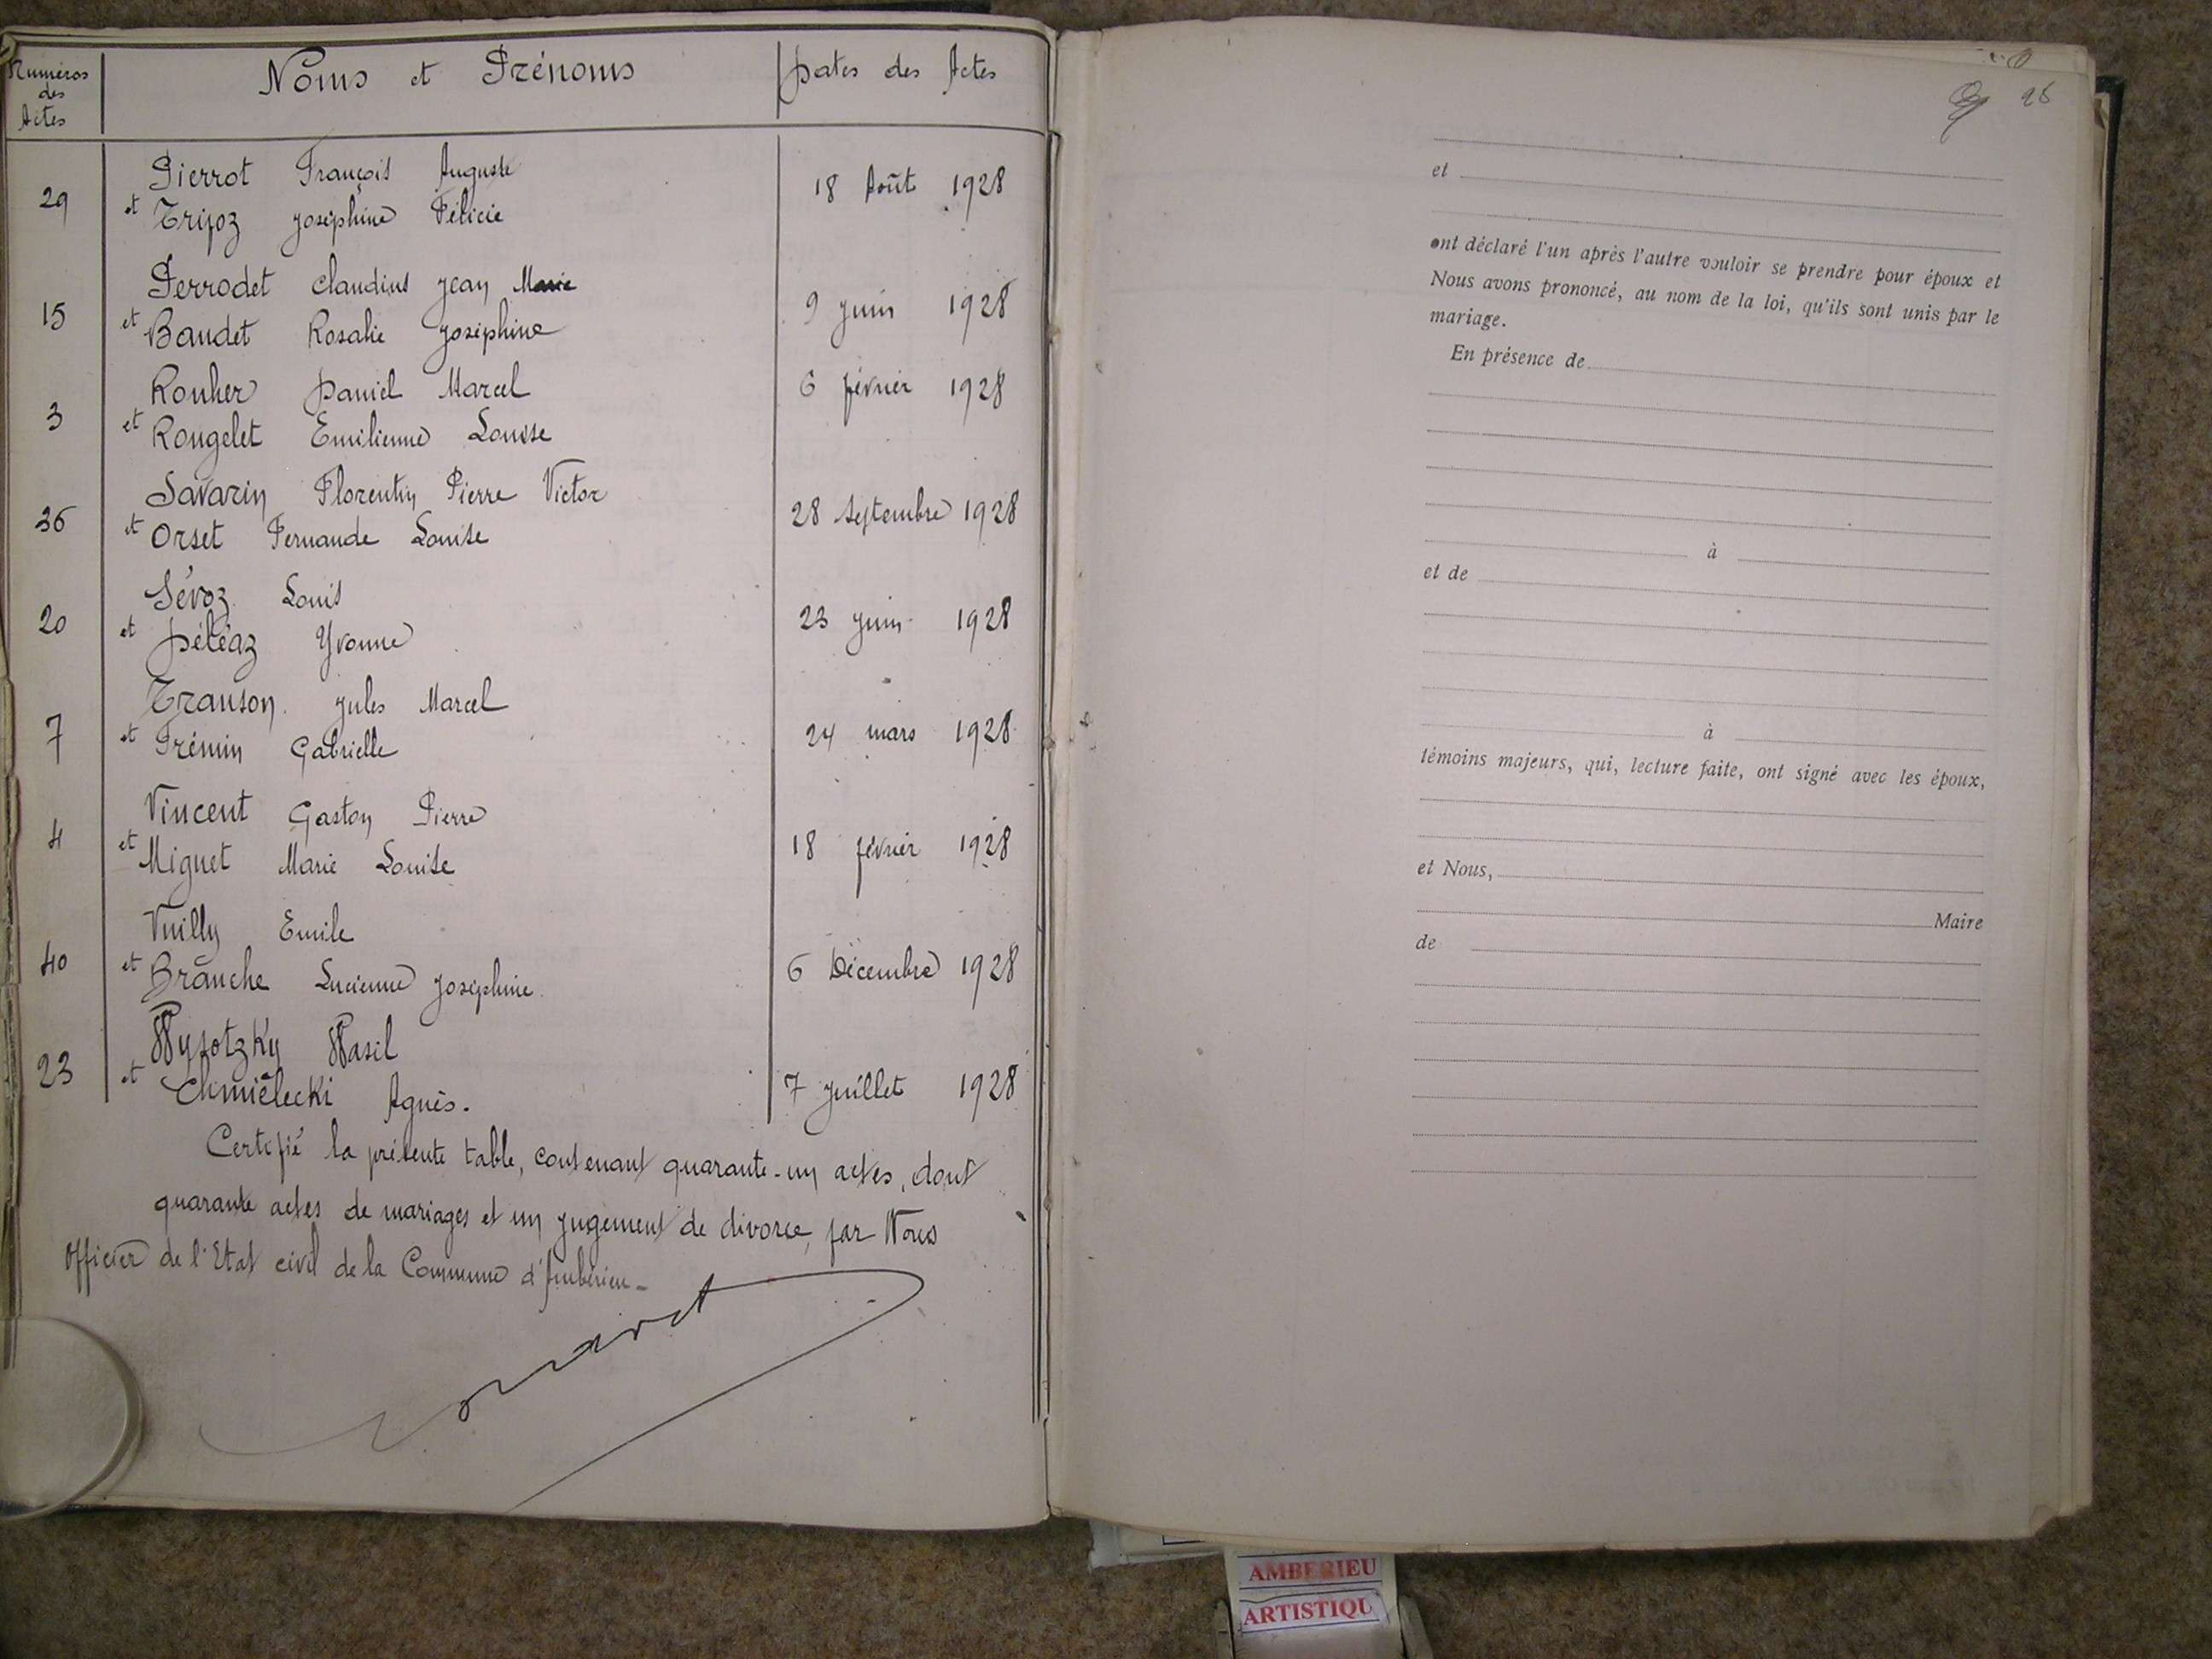 Numéros
des
Actes
Noms et Prénoms
Dates des Actes
Pierrot François Auguste
29 et Tripoz Joséphine Félicie 18 Août 1928
Perrodet Claudius Jean Marie
15 et Baudet Rosalie Joséphine 9 Juin 1928
Rouher Daniel Marcel 6 février 1928
3 et Rougelet Emilienne Louise
Savarin Florentin Pierre Victor
36 et Orset Fernande Louise 28 Septembre 1928
Sévoz Louis
20 et Déléaz Yvonne 23 Juin 1928
Transon Jules Marcel
7 et Frémin Gabrielle 24 mars 1928
Vincent Gaston Pierre
4 et Miguet Marie Louise 18 février 1928
Vuilly Emile
40 et Branche Lucienne Joséphine 6 Décembre 1928
Wysotzky Wasil
23 et Chmielecki Agnès. 7 Juillet 1928
Certifié la présente table, contenant quarante-un actes, dont
quarante actes de mariages et un jugement de divorce, par Nous
Officier de l'Etat civil de la Commune d'Ambérieu-
26
et
ont déclaré l'un après l'autre vouloir se prendre pour époux et
Nous avons prononcé, au nom de la loi, qu'ils sont unis par le
mariage.
En présence de
à
et de
à
témoins majeurs, qui, lecture faite, ont signé avec les époux,
et Nous,
Maire
de
AMBERIEU
ARTISTIQU